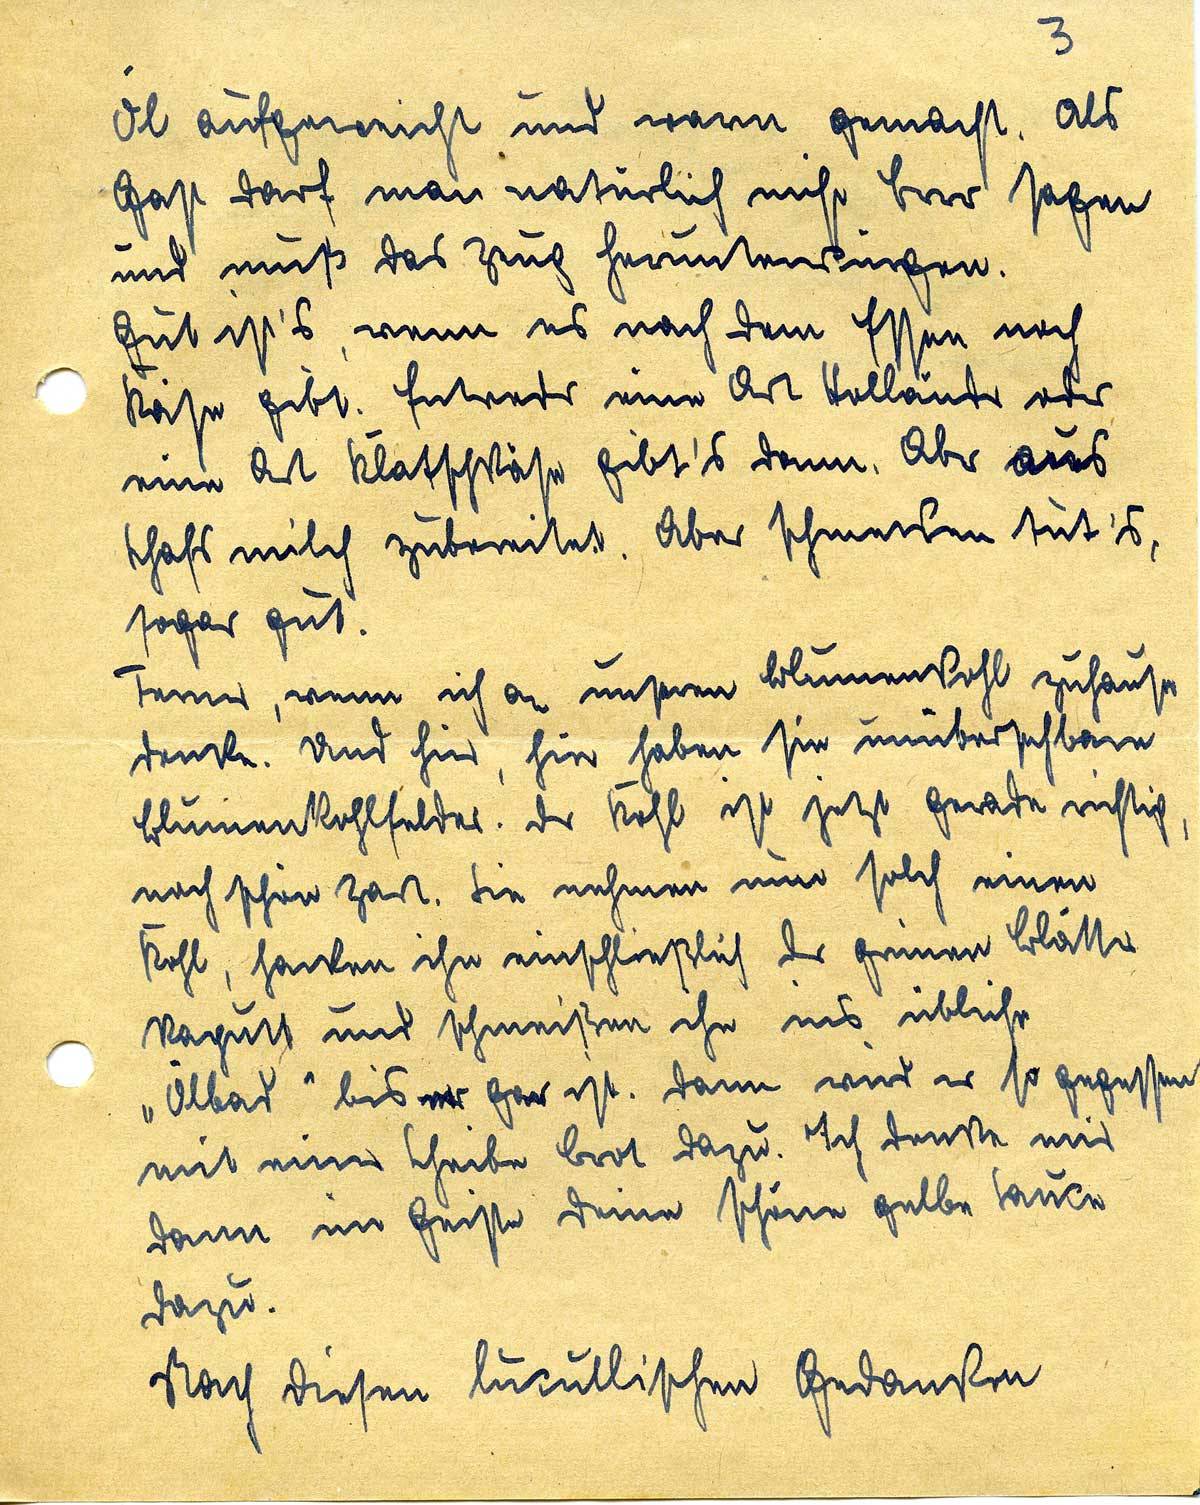 3
Öl aufgeweicht und warm gemacht. Als
Gast darf man natürlich nicht brrr sagen
und muß das Zeug herunterwürgen.
Gut ist's, wenn es nach dem Essen noch
Käse gibt. Entweder eine Art Holländer oder
eine Art Klatschkäse gibt's dann. Aber aus
Schafsmilch zubereitet. Aber schmecken tut's,
sogar gut.
Ferner, wenn ich an unseren Blumenkohl zuhause
denke. Und hier, hier haben sie unübersehbare
Blumenkohlfelder. Der Kohl ist jetzt gerade richtig,
noch schön zart. Sie nehmen nun solch einen
Kohl, hacken ihn einschließlich der grünen Blätter
kaputt und schmeißen ihn ins übliche
„Ölbad" bis er gar ist. Dann wird er so gegessen
mit einer Scheibe Brot dazu. Ich denke mir
dann im Geiste Deine schöne gelbe Sauce
dazu.
Nach diesen lukullischen Gedanken